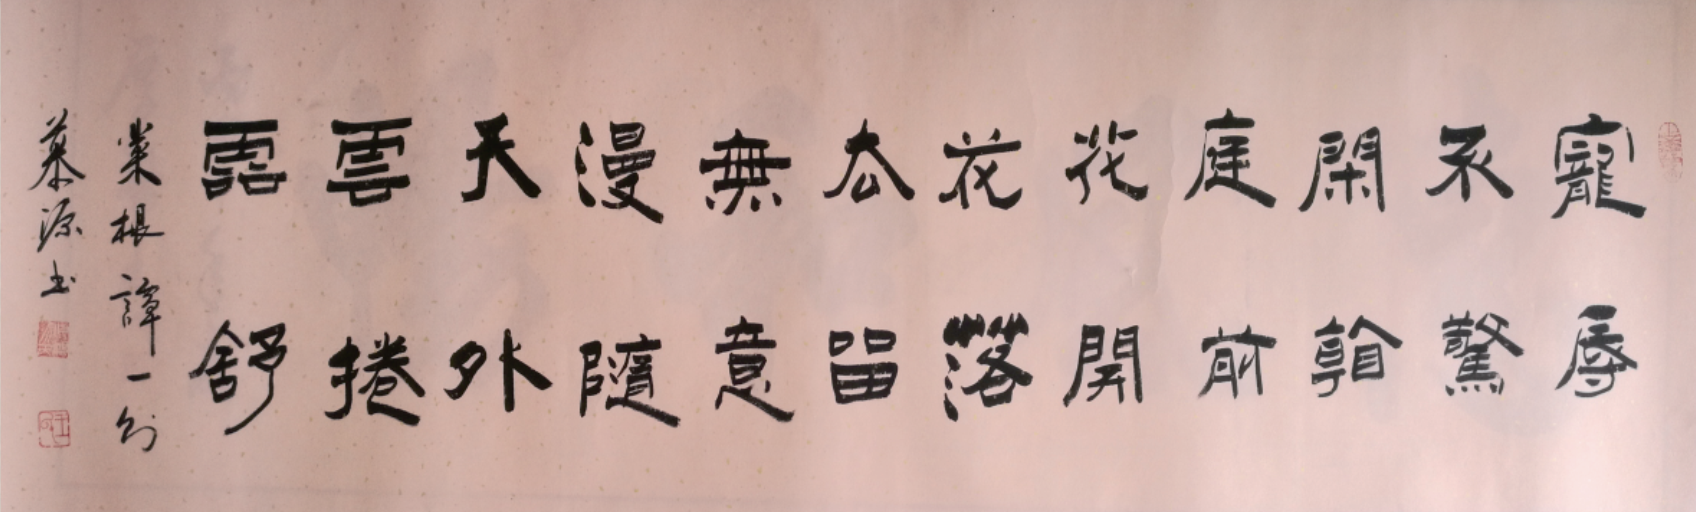 寵辱
不驚
閑看
庭前
花開
花落
去留
無意
漫隨
天外
雲捲
雲舒
菜根譚一则
慕源书